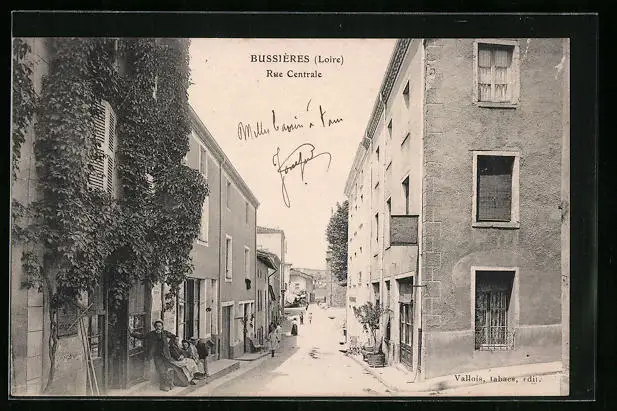 BUSSIÈRES (Loire)
Rue Centrale
Mille baisers à tous
Vallois, tabacs, édit.